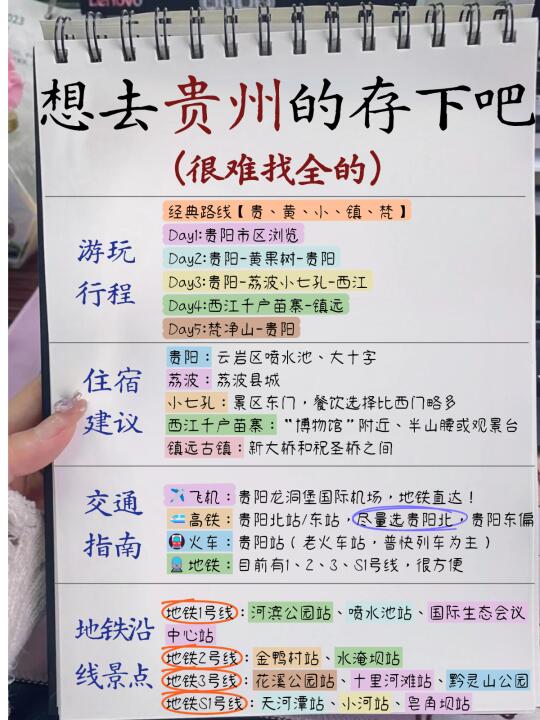 Lenovo
想去贵州的存下吧
(很难找全的)
游玩
行程
经典路线【贵、黄、小、镇、梵】
Day1:贵阳市区浏览
Day2:贵阳-黄果树-贵阳
Day3:贵阳-荔波小七孔-西江
Day4:西江千户苗寨-镇远
Day5:梵净山-贵阳
住宿
建议
贵阳：云岩区喷水池、大十字
荔波：荔波县城
小七孔：景区东门，餐饮选择比西门略多
西江千户苗寨：“博物馆”附近、半山腰或观景台
镇远古镇：新大桥和祝圣桥之间
交通
指南
飞机：贵阳龙洞堡国际机场，地铁直达！
高铁：贵阳北站/东站，尽量选贵阳北，贵阳东偏
火车：贵阳站（老火车站，普快列车为主）
地铁：目前有1、2、3、S1号线，很方便
地铁沿
线景点
地铁1号线：河滨公园站、喷水池站、国际生态会议
中心站
地铁2号线：金鸭村站、水淹坝站
地铁3号线：花溪公园站、十里河滩站、黔灵山公园
地铁S1号线：天河潭站、小河站、皂角坝站